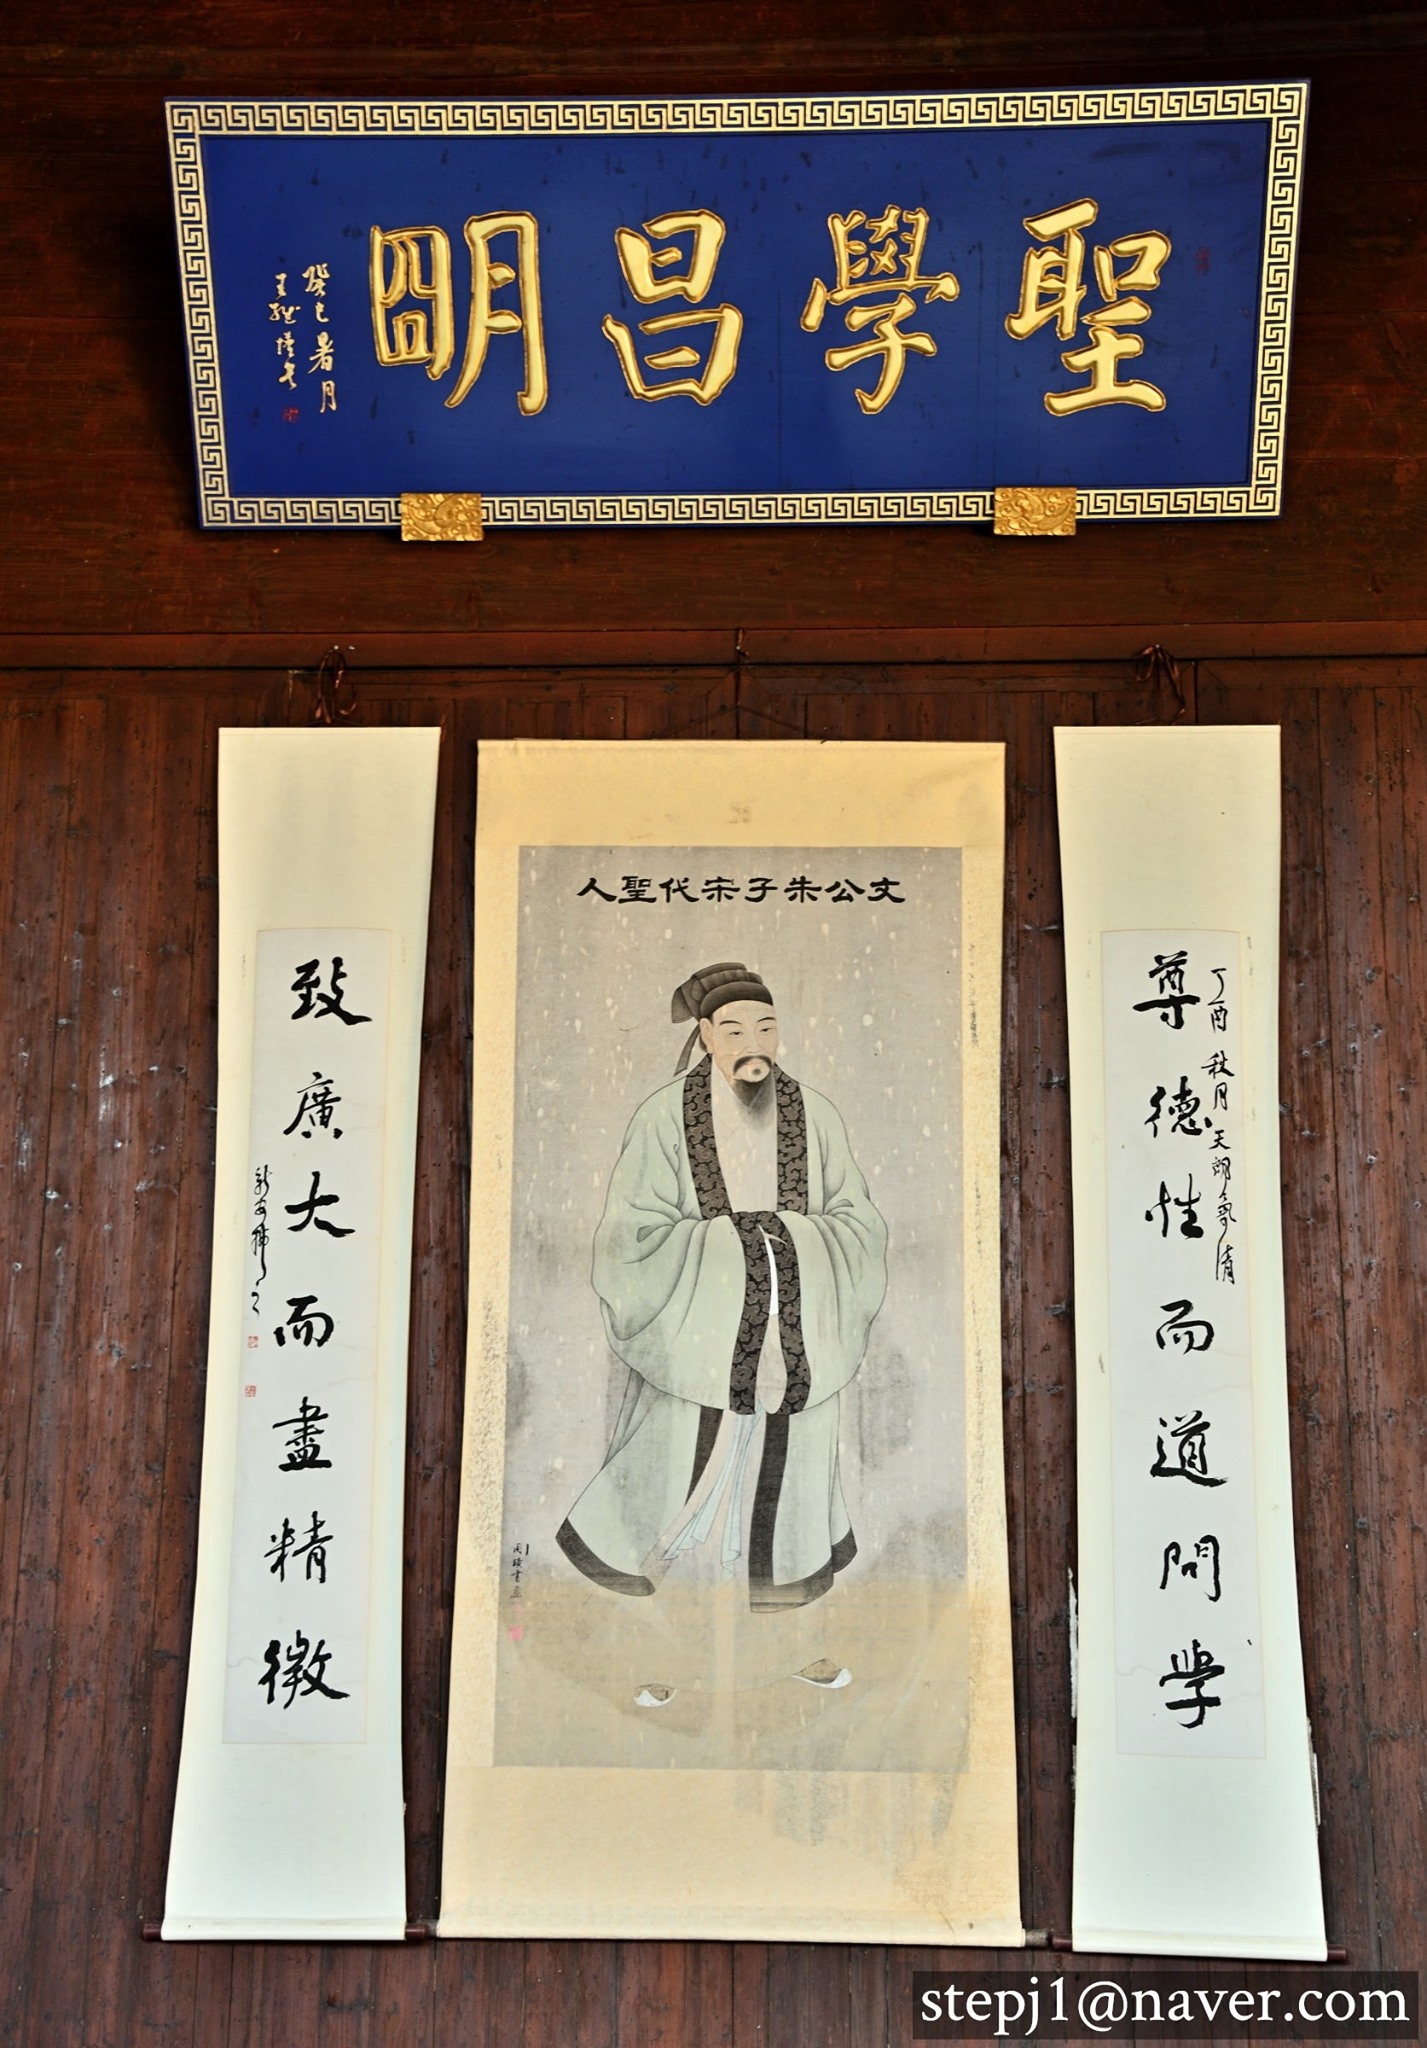 聖學昌明
癸巳暑月
文公朱子宋代聖人
丁酉秋月天朗氣清
尊德性而道問學
致廣大而盡精微
stepj1@naver.com